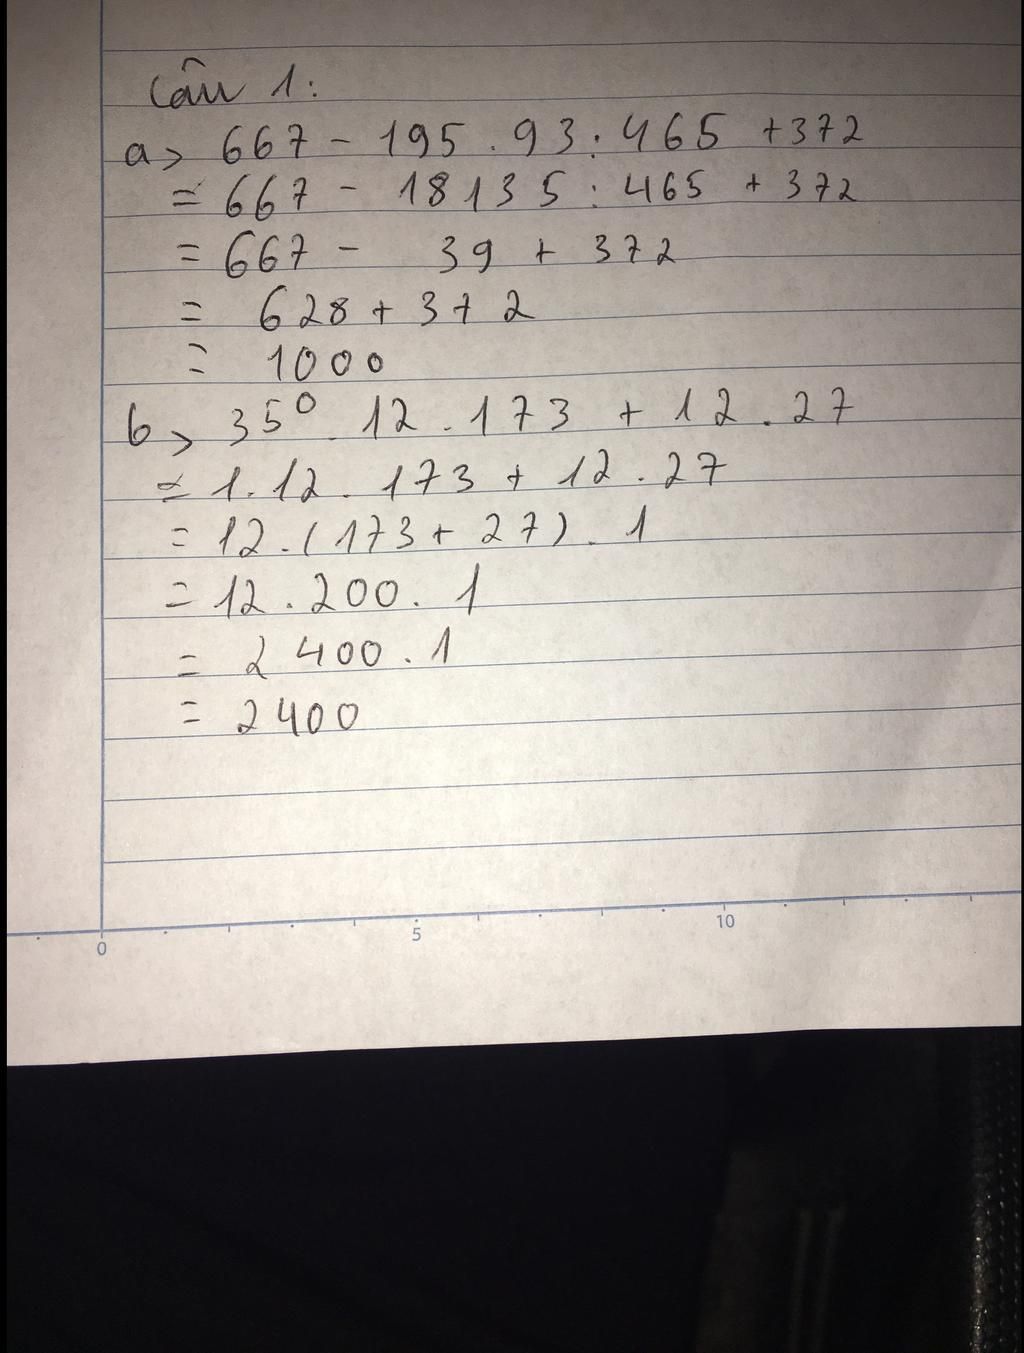 Câu 1:
a> 667 - 195 . 93 : 465 + 372
= 667 - 18135 : 465 + 372
= 667 - 39 + 372
= 628 + 372
= 1000
b> 35⁰ . 12 . 173 + 12 . 27
= 1 . 12 . 173 + 12 . 27
= 12 . (173 + 27) . 1
= 12 . 200 . 1
= 2400 . 1
= 2400
0 5 10